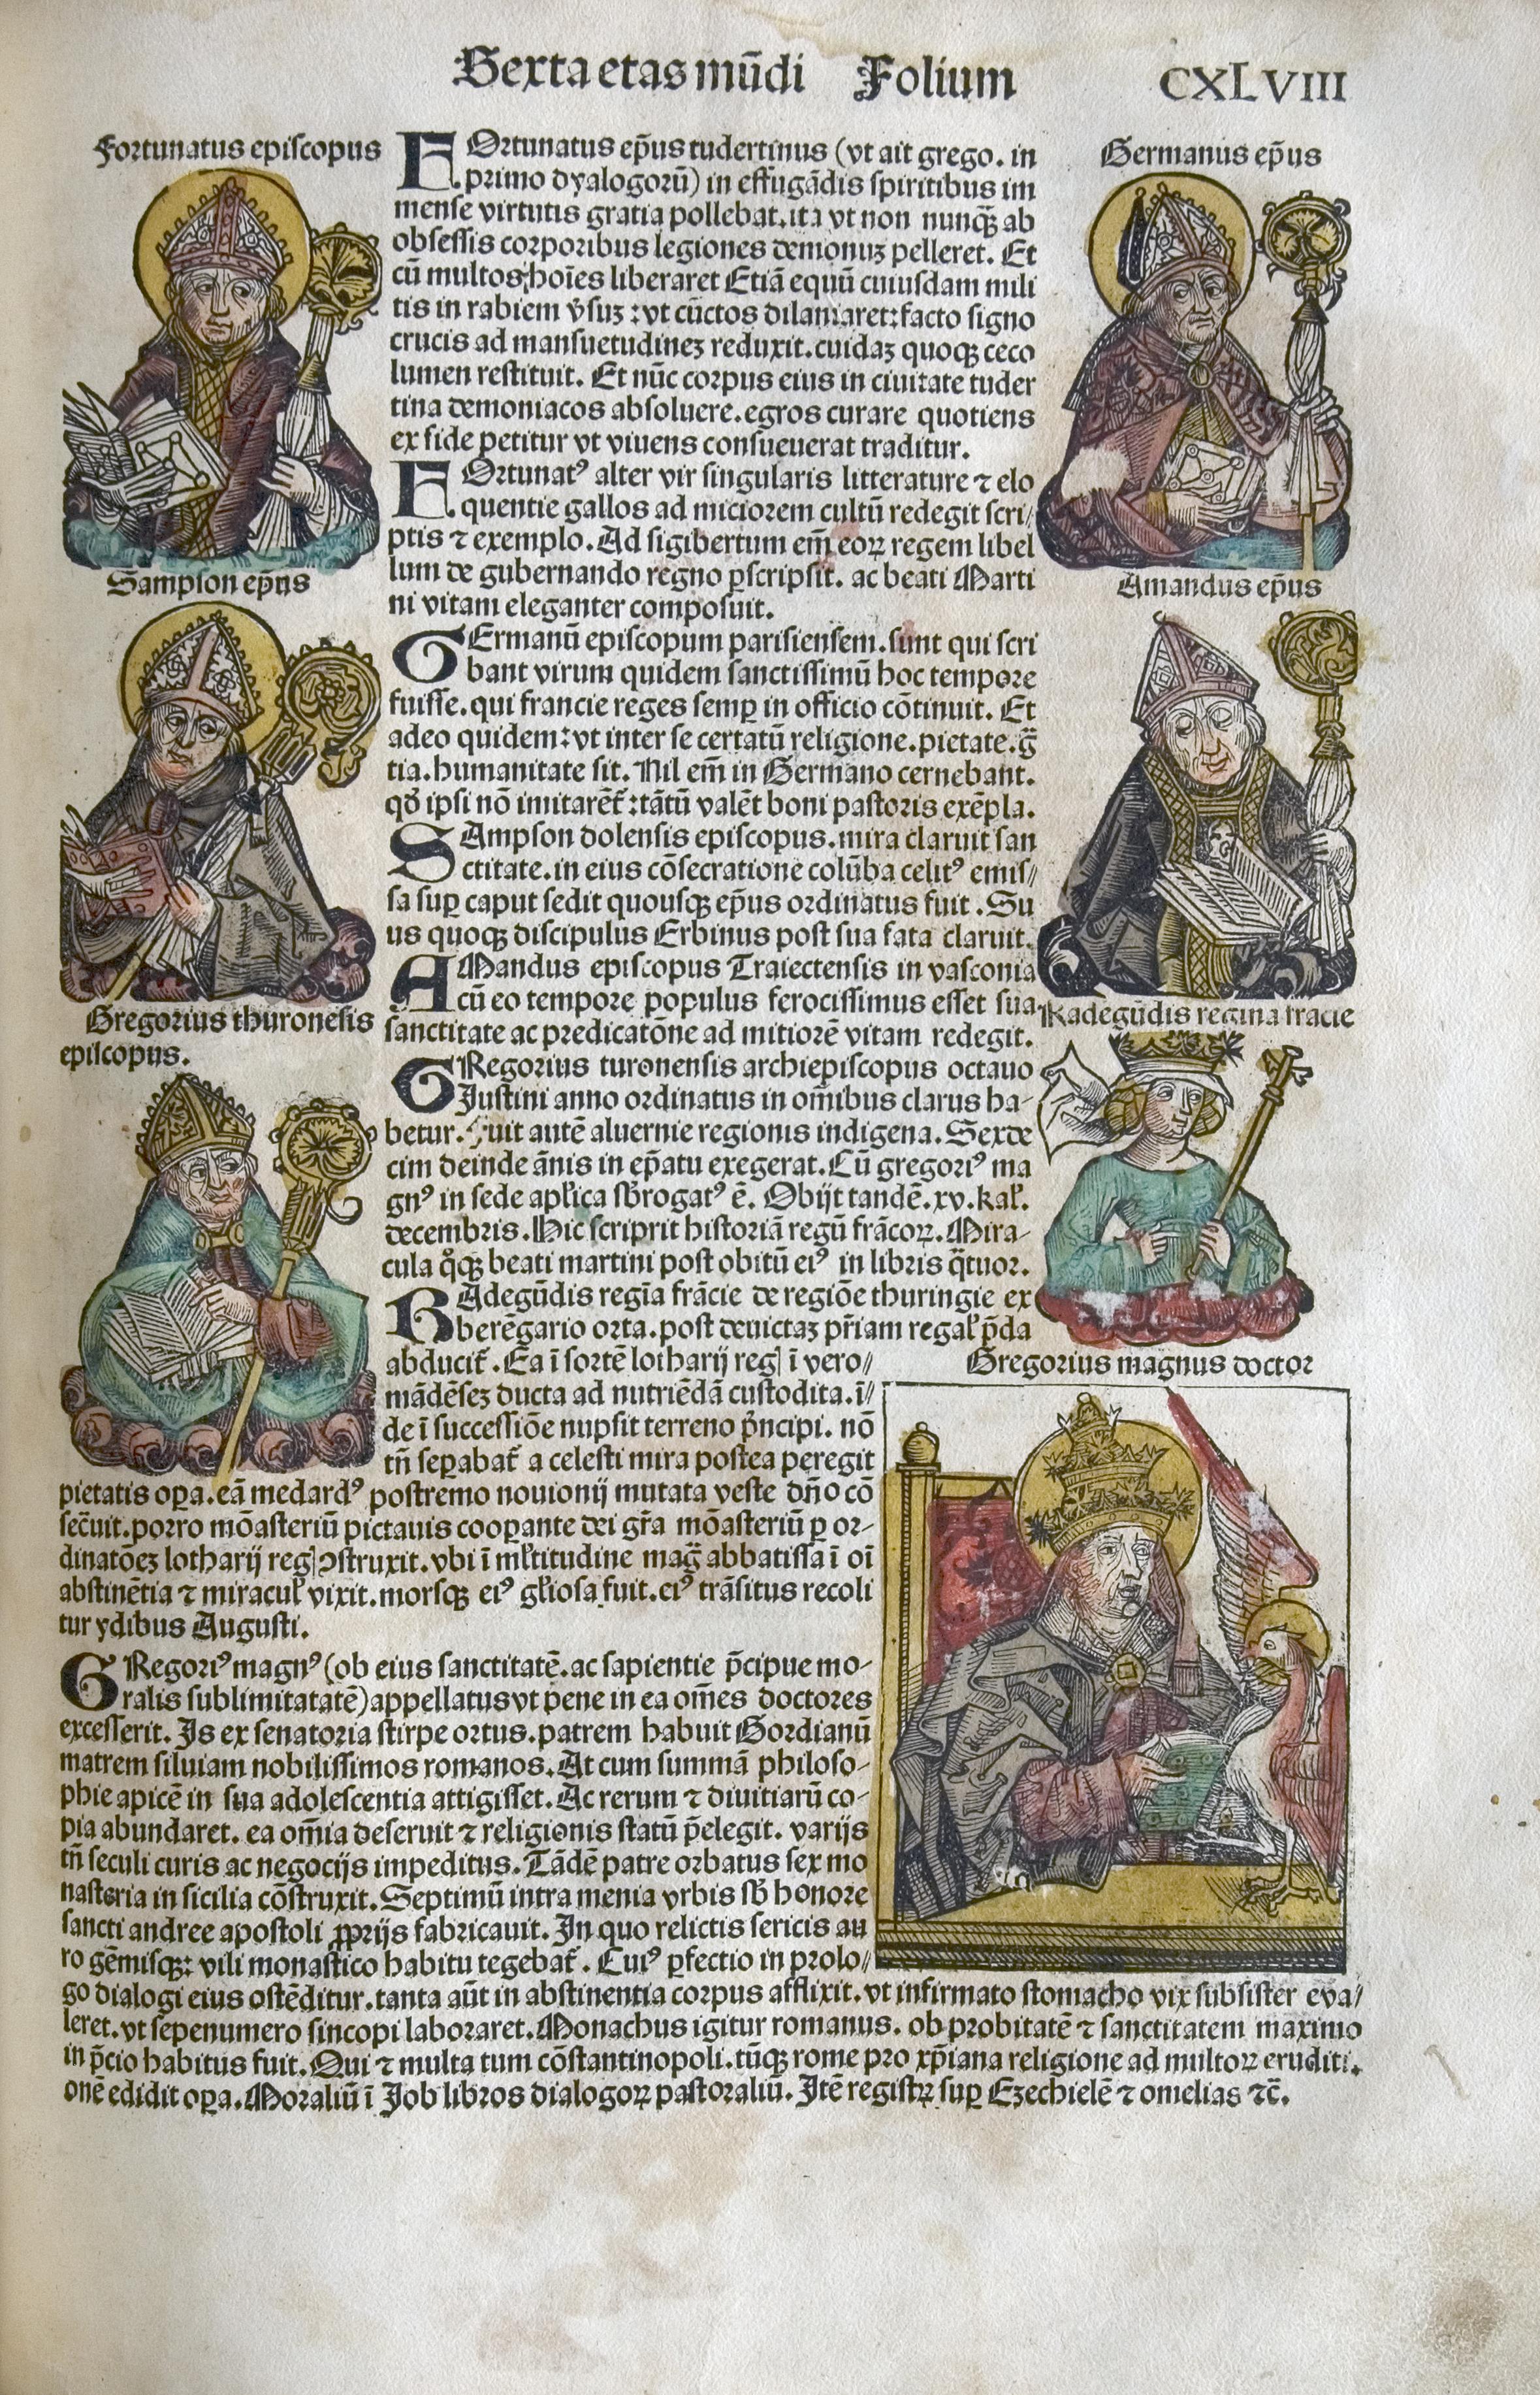 Sexta etas mūdi Folium CXLVIII
Fortunatus episcopus
FOrtunatus ep̄us tudertinus (vt ait grego. in
primo dyalogorū) in effugādis spiritibus im
mense virtutis gratia pollebat. ita vt non nunq̄ ab
obsessis corporibus legiones demonuꝫ pelleret. Et
cū multos hoīes liberaret Etiā equū cuiusdam mili
tis in rabiem v̓suꝫ : vt cūctos dilaniaret: facto signo
crucis ad mansuetudineꝫ reduxit. cuidaꝫ quoqꝫ ceco
lumen restituit. Et nūc corpus eius in ciuitate tuder
tina demoniacos absoluere. egros curare quotiens
ex fide petitur vt viuens consueuerat traditur.
FOrtunatꝰ alter vir singularis litterature ⁊ elo
quentie gallos ad miciorem cultū redegit scri/
ptis ⁊ exemplo. Ad sigibertum em̄ eoꝝ regem libel
lum de gubernando regno ꝑscripsit. ac beati Marti
ni vitam eleganter composuit.
GErmanū episcopum parisiensem. sunt qui scri
bant virum quidem sanctissimū hoc tempore
fuisse. qui francie reges semꝑ in officio cōtinuit. Et
adeo quidem: vt inter se certatū religione. pietate. g̃
tia. humanitate sit. Nil em̄ in Germano cernebant.
qđ ipsi nō imitarēt̄: tātū valēt boni pastoris exēpla.
SAmpson dolensis episcopus. mira claruit san
ctitate. in eius cōsecratione colūba celitꝰ emis/
sa suꝑ caput sedit quousqꝫ ep̄us ordinatus fuit. Su
us quoqꝫ discipulus Erbinus post sua fata claruit.
AMandus episcopus Traiectensis in vasconia
cū eo tempore populus ferocissimus esset sua
sanctitate ac predicatōne ad mitiorē vitam redegit.
GRegorius turonensis archiepiscopus octauo
Justini anno ordinatus in om̄ibus clarus ha-
betur. Fuit autē aluernie regionis indigena. Sexde
cim deinde ānis in ep̄atu exegerat. Cū gregoriꝰ ma
gnꝰ in sede apl̓ica sb̓rogatꝰ ē. Obijt tandē. xv. kal̓.
decembris. Hic scriprit historiā regū frācoꝝ. Mira-
cula q̊qꝫ beati martini post obitū eiꝰ in libris q̄tuor.
RAdegūdis regīa frācie de regiōe thuringie ex
berēgario orta. post deuictaꝫ pr̄iam regal̓ p̄da
abducit̄. Ea ī sortē lotharij reg̣ ī vero/
mādēseꝫ ducta ad nutriēdā custodita. ī/
de ī successiōe nupsit terreno pͥncipi. nō
tn̄ seꝑabat̄ a celesti mira postea peregit
pietatis oꝑa. eā medardꝰ postremo nouionij mutata veste dn̄o cō
sec̄uit. porro mōasteriū pictauis cooꝑante dei gr̄a mōasteriū ꝑ or-
dinatōeꝫ lotharij reg̣ ꝯstruxit. vbi ī ml̓titudine mag̃ abbatissa ī oī
abstinētia ⁊ miracul̓ vixit. morsqꝫ eiꝰ gl̓iosa fuit. eiꝰ trāsitus recoli
tur ydibus Augusti.
GRegoriꝰ magnꝰ (ob eius sanctitatē. ac sapientie p̄cipue mo-
ralis sublimitatatē) appellatus vt pene in ea om̄es doctores
excesserit. Is ex senatoria stirpe ortus. patrem habuit Gordianū
matrem siluiam nobilissimos romanos. At cum summā philoso-
phie apicē in sua adolescentia attigisset. Ac rerum ⁊ diuitiarū co-
pia abundaret. ea om̄ia deseruit ⁊ religionis statū p̄elegit. varijs
tn̄ seculi curis ac negocijs impeditus. Tādē patre orbatus sex mo
nasteria in sicilia cōstruxit. Septimū intra menia vrbis sb̓ honore
sancti andree apostoli ꝓprijs fabricauit. In quo relictis sericis au
ro gēmisqꝫ: vili monastico habitu tegebat̄. Cuiꝰ ꝑfectio in prolo/
go dialogi eius ostēditur. tanta aūt in abstinentia corpus afflixit. vt infirmato stomacho vix subsister eva/
leret. vt sepenumero sincopi laboraret. Monachus igitur romanus. ob probitatē ⁊ sanctitatem maximo
in p̄cio habitus fuit. Qui ⁊ multa tum cōstantinopoli. tūqꝫ rome pro xp̄iana religione ad multoꝝ eruditi.
onē edidit oꝑa. Moraliū ī Job libros dialogoꝝ pastoraliū. Itē registꝝ suꝑ Ezechielē ⁊ omelias ⁊c̄.
Sampson ep̄us
Gregorius thuronēsis
episcopus.
Germanus ep̄us
Amandus ep̄us
Radegūdis regina fracie
Gregorius magnus doctor